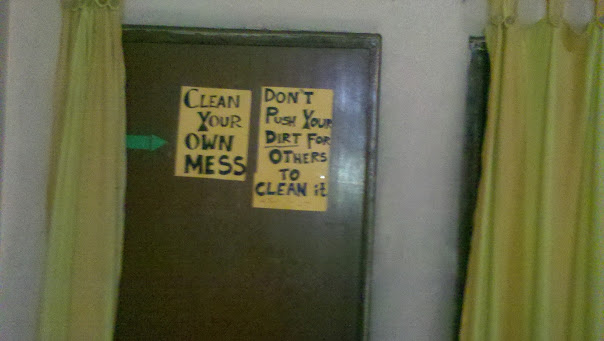 CLEAN
YOUR
OWN
MESS
DON'T
PUSH YOUR
DIRT FOR
OTHERS
TO
CLEAN it